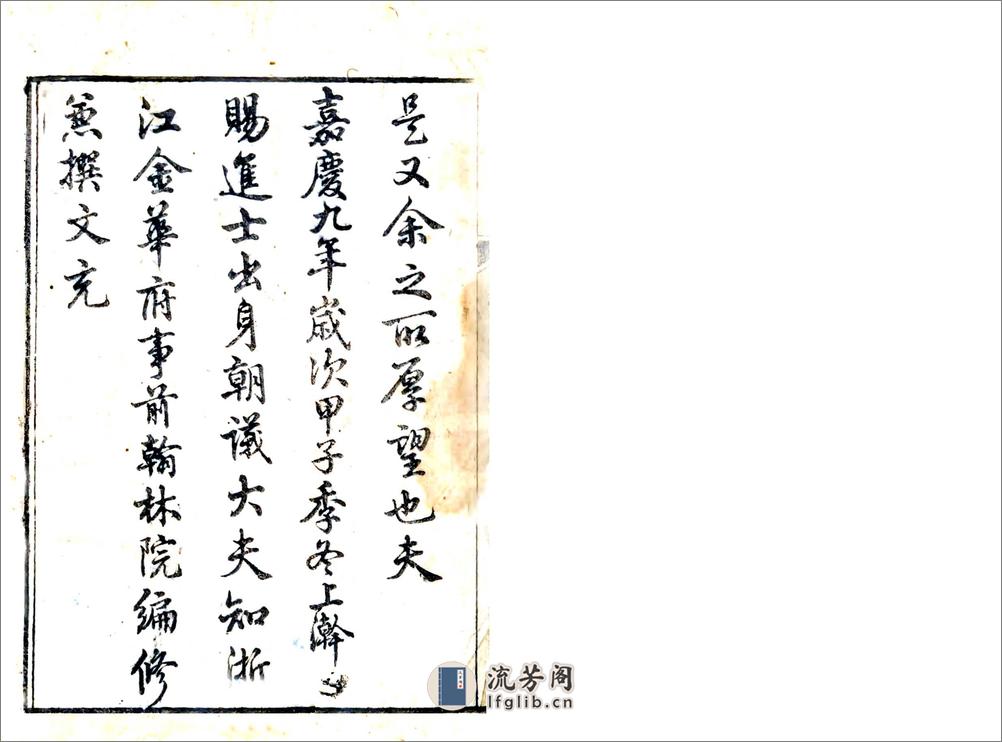 是又余之所厚望也夫
嘉慶九年歲次甲子季冬上澣
賜進士出身朝議大夫知浙
江金華府事前翰林院編修
兼撰文充
流芳阁
lfglib.cn